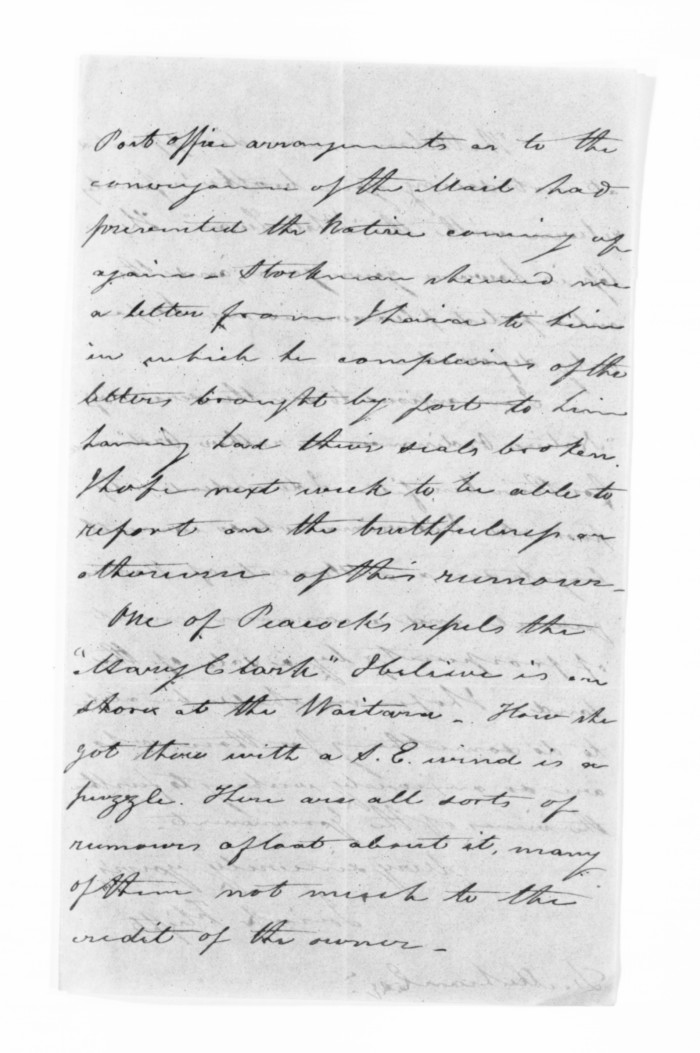 Post office arrangements as to the
conveyance of the Mail had
prevented the Native coming up
again - Stockman shewed me
a letter from Ihaia to him
in which he complains of the
letters brought by post to him
having had their seals broken.
I hope next week to be able to
report on the truthfulness or
otherwise of this rumour -
One of Peacock's vessels the
"Mary Clark" I believe is on
shore at the Waitara - How she
got there with a S. E. wind is a
puzzle. There are all sorts of
rumours afloat about it, many
of them not much to the
credit of the owner -